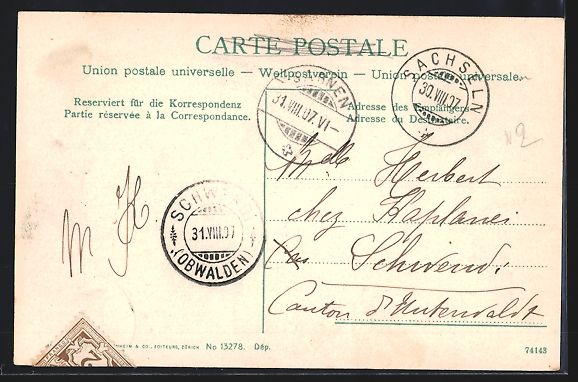 CARTE POSTALE
Union postale universelle — Weltpostverein — Union postale universale
Reserviert für die Korrespondenz
Partie réservée à la Correspondance.
Adresse des Empfängers
Adresse du Destinataire.
SARNEN
31.VIII.07.VI-
SACHSELN
30.VIII.07
SCHWENDI
31.VIII.07
(OBWALDEN)
M H
Mlle Herbert
chez Kaplanei
Schwendi
Canton d'Unterwaldt
& CO., EDITEURS, ZÜRICH. No 13278. Dép.
74143